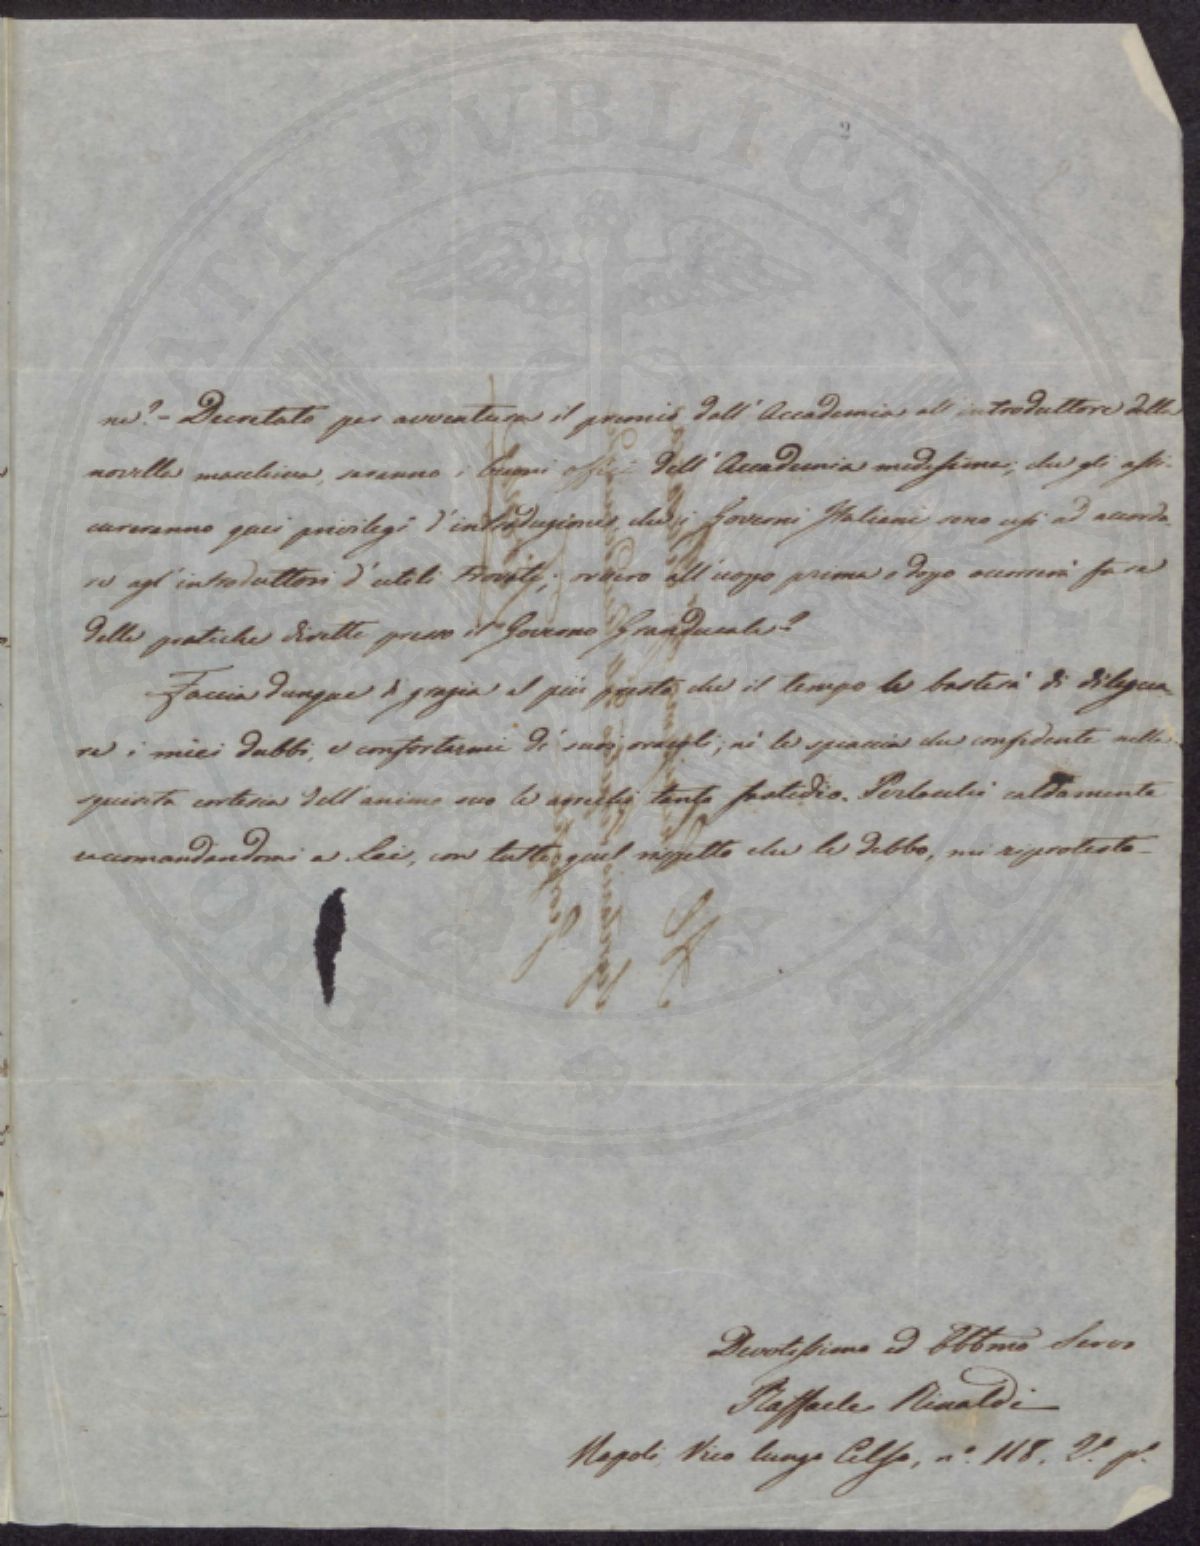 2
ne? - Decretato per avventura il premio dall'Accademia all'introduttore della
novella macchina, saranno i buoni offici dell'Accademia medesima, che gli assi-
cureranno quei privilegi d'introduzione, che i Governi Italiani sono usi ad accorda-
re agl'introduttori d'utili trovati; ovvero all'uopo prima o dopo occorrerà fare
delle pratiche dirette presso il Governo Granducale?
Faccia dunque di grazia al più presto che il tempo le basterà di dilegua-
re i miei dubbi, e confortarmi de' suoi oracoli; nè le spiaccia che confidente nella
squisita cortesia dell'animo suo le arrechi tanto fastidio. Perlocchè caldamente
raccomandandomi a Lei, con tutto quel rispetto che le debbo, mi riprotesto -
Devotissimo ed Obbmo Servo
Raffaele Rinaldi
Napoli, Vico lungo Celso, n.º 118. 2.º p.º
PROSPERITATI PUBLICAE